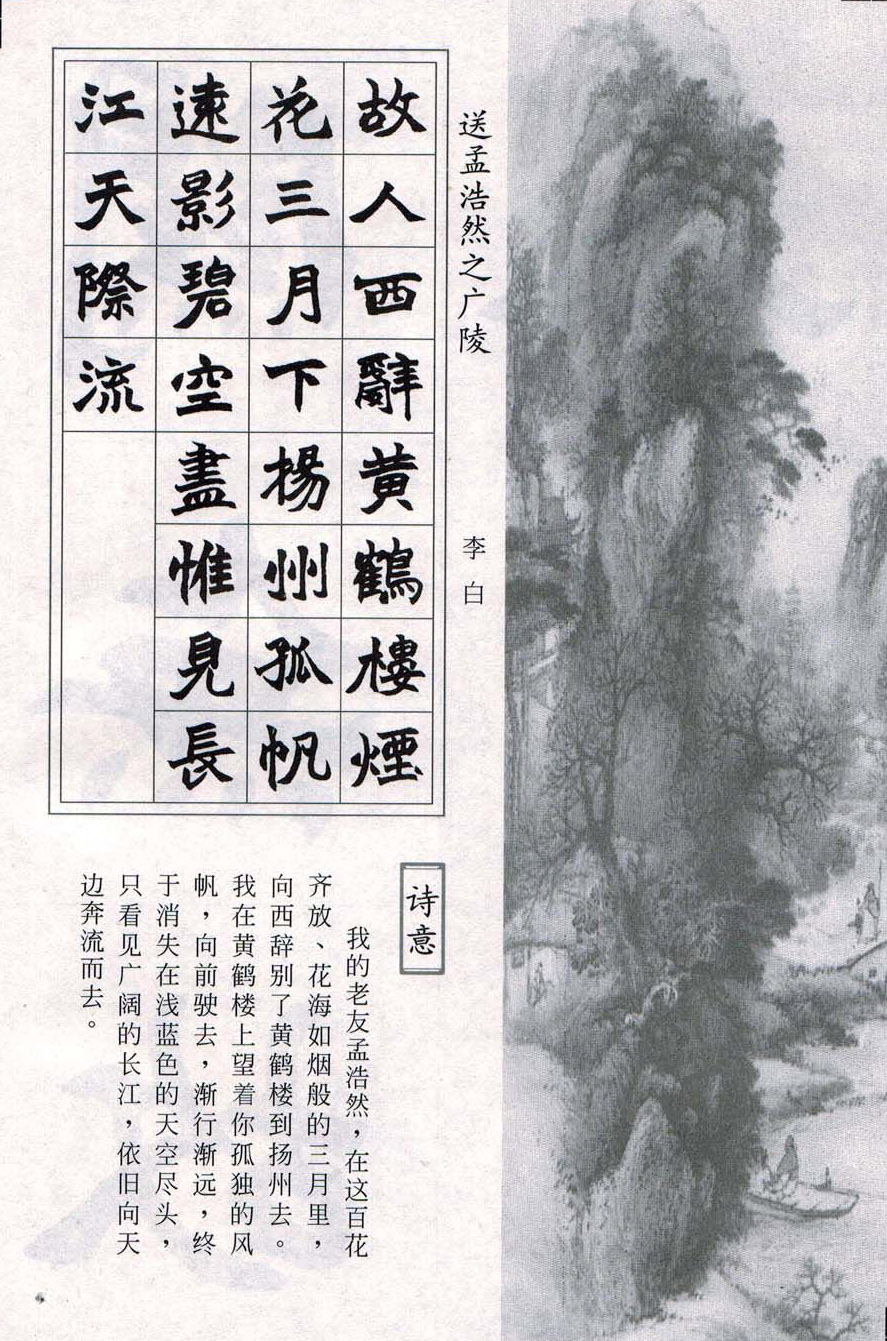 送孟浩然之广陵
李白
故人西辭黄鶴樓煙
花三月下揚州孤帆
遠影碧空盡惟見長
江天際流
诗意
我的老友孟浩然，在这百花
齐放、花海如烟般的三月里，
向西辞别了黄鹤楼到扬州去。
我在黄鹤楼上望着你孤独的风
帆，向前驶去，渐行渐远，终
于消失在浅蓝色的天空尽头，
只看见广阔的长江，依旧向天
边奔流而去。